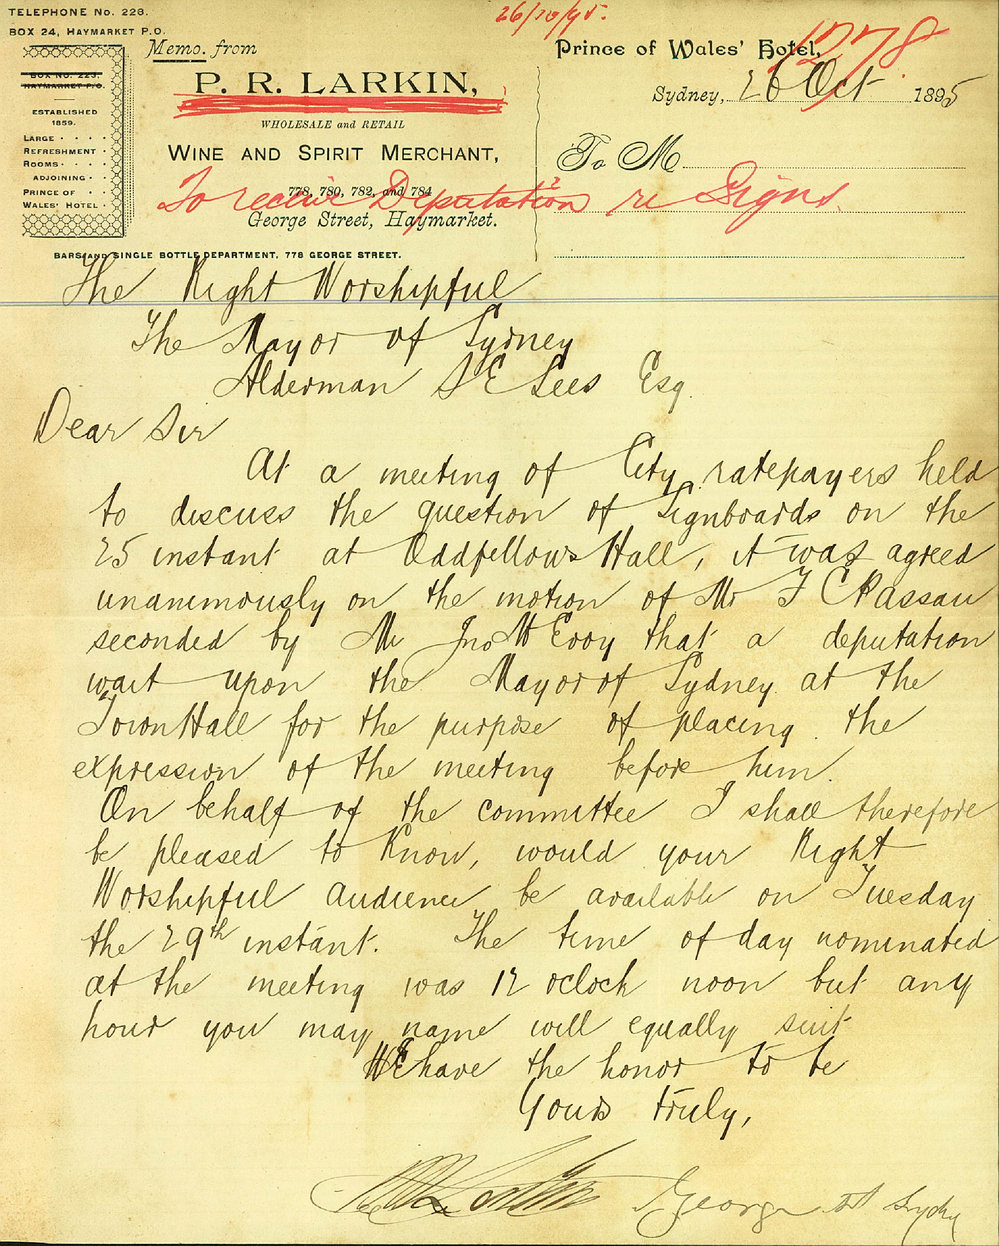 TELEPHONE No. 228.
BOX 24, HAYMARKET P.O.
26/10/95.
Memo. from
Prince of Wales' Hotel,
1278
BOX NO. 223,
HAYMARKET P.O.
P. R. LARKIN,
Sydney, 26 Oct 1895
ESTABLISHED
1859.
LARGE
REFRESHMENT
ROOMS
ADJOINING
PRINCE OF
WALES' HOTEL
WHOLESALE and RETAIL
WINE AND SPIRIT MERCHANT,
To M
778, 780, 782, and 784
To receive Deputation re Signs
George Street, Haymarket.
BARS AND SINGLE BOTTLE DEPARTMENT, 778 GEORGE STREET.
The Right Worshipful
The Mayor of Sydney
Alderman S E Lees Esq.
Dear Sir
At a meeting of City ratepayers held
to discuss the question of Signboards on the
25 instant at Oddfellows Hall, it was agreed
unanimously on the motion of Mr F C Passau
seconded by Mr Jno McEvoy that a deputation
wait upon the Mayor of Sydney at the
Town Hall for the purpose of placing the
expression of the meeting before him.
On behalf of the committee I shall therefore
be pleased to know, would your Right
Worshipful audience be available on Tuesday
the 29th instant. The time of day nominated
at the meeting was 12 oclock noon but any
hour you may name will equally suit
We have the honor to be
Yours truly,
George St Sydny